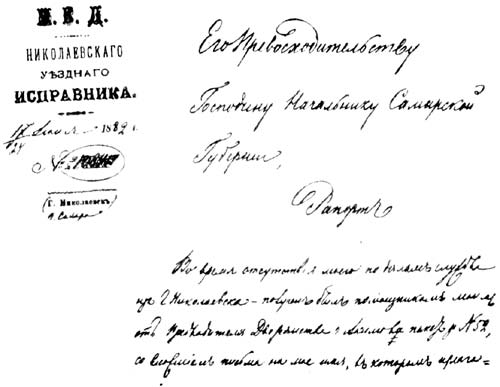 М. В. Д.
НИКОЛАЕВСКАГО
УѢЗДНАГО
ИСПРАВНИКА.
1882 г.
№
(г. Николаевскъ)
г. Самара
Его Превосходительству
Господину Начальнику Самарской
Губерніи,
Рапортъ
Во время отсутствія моего по дѣламъ службы
изъ г. Николаевска получен былъ помощникомъ моимъ
отъ Предводителя Дворянства г. Акимова пакетъ № 52,
со письма на мое имя, въ которомъ прила=